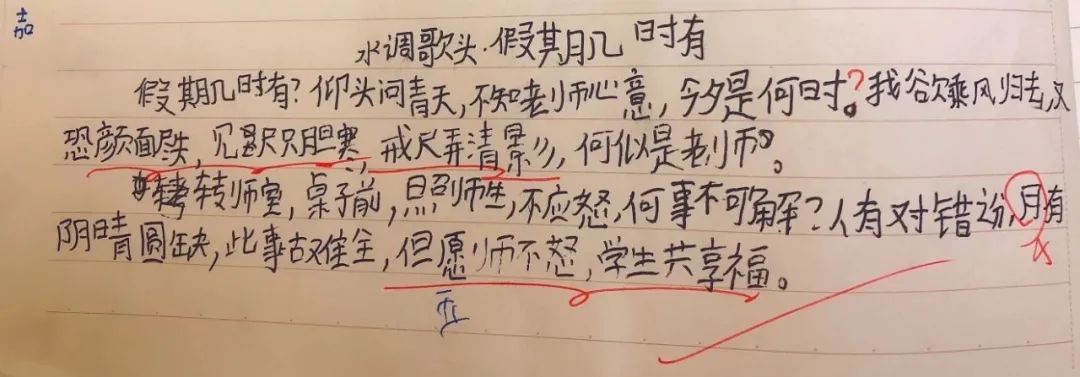 嘉
水调歌头·假期几时有
假期几时有?仰头问青天,不知老师心意,今夕是何时?我欲乘风归去,又
恐颜面尽失,见尺只胆寒,戒尺弄清影,何似是老师。
转师室,桌子前,照师生,不应怒,何事不可解?人有对错说,月有
阴晴圆缺,此事古难全,但愿师不怒,学生共享福。